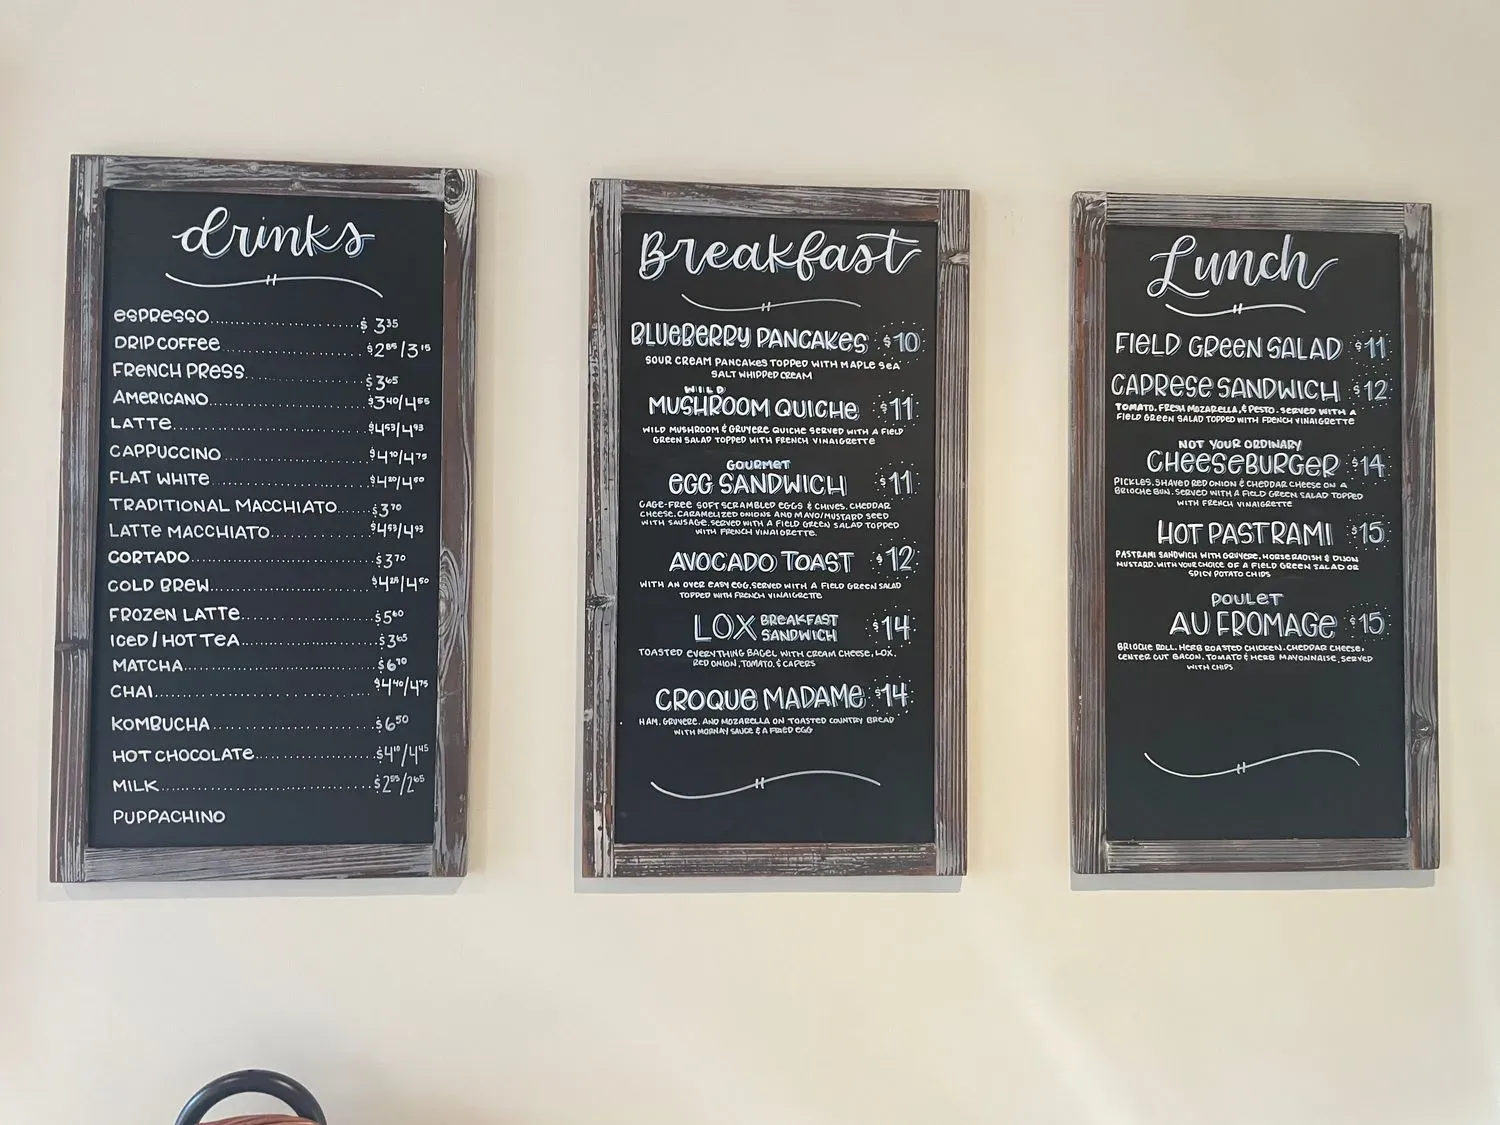 drinks
ESPRESSO $3.35
DRIP COFFEE $2.85/3.15
FRENCH PRESS $3.65
AMERICANO $3.40/4.55
LATTE $4.53/4.93
CAPPUCCINO $4.10/4.75
FLAT WHITE $4.20/4.60
TRADITIONAL MACCHIATO $3.70
LATTE MACCHIATO $4.53/4.93
CORTADO $3.70
COLD BREW $4.25/4.50
FROZEN LATTE $5.60
ICED / HOT TEA $3.65
MATCHA $6.70
CHAI $4.40/4.75
KOMBUCHA $6.50
HOT CHOCOLATE $4.10/4.45
MILK $2.55/2.65
PUPPACHINO
Breakfast
BLUEBERRY PANCAKES $10
SOUR CREAM PANCAKES TOPPED WITH MAPLE SEA
SALT WHIPPED CREAM
WILD
MUSHROOM QUICHE $11
WILD MUSHROOM & GRUYERE QUICHE SERVED WITH A FIELD
GREEN SALAD TOPPED WITH FRENCH VINAIGRETTE
GOURMET
EGG SANDWICH $11
CAGE-FREE SOFT SCRAMBLED EGGS & CHIVES, CHEDDAR
CHEESE, CARAMELIZED ONIONS AND MAYO/MUSTARD SEED
WITH SAUSAGE. SERVED WITH A FIELD GREEN SALAD TOPPED
WITH FRENCH VINAIGRETTE.
AVOCADO TOAST $12
WITH AN OVER EASY EGG. SERVED WITH A FIELD GREEN SALAD
TOPPED WITH FRENCH VINAIGRETTE
LOX BREAKFAST SANDWICH $14
TOASTED EVERYTHING BAGEL WITH CREAM CHEESE, LOX,
RED ONION, TOMATO, & CAPERS
CROQUE MADAME $14
HAM, GRUYERE, AND MOZARELLA ON TOASTED COUNTRY BREAD
WITH MORNAY SAUCE & A FRIED EGG
Lunch
FIELD GREEN SALAD $11
CAPRESE SANDWICH $12
TOMATO, FRESH MOZARELLA, & PESTO. SERVED WITH A
FIELD GREEN SALAD TOPPED WITH FRENCH VINAIGRETTE
NOT YOUR ORDINARY
CHEESEBURGER $14
PICKLES, SHAVED RED ONION & CHEDDAR CHEESE ON A
BRIOCHE BUN. SERVED WITH A FIELD GREEN SALAD TOPPED
WITH FRENCH VINAIGRETTE
HOT PASTRAMI $15
PASTRAMI SANDWICH WITH GRUYERE, HORSERADISH & DIJON
MUSTARD. WITH YOUR CHOICE OF A FIELD GREEN SALAD OR
SPICY POTATO CHIPS
POULET
AU FROMAGE $15
BRIOCHE ROLL, HERB ROASTED CHICKEN, CHEDDAR CHEESE,
CENTER CUT BACON, TOMATO & HERB MAYONNAISE, SERVED
WITH CHIPS